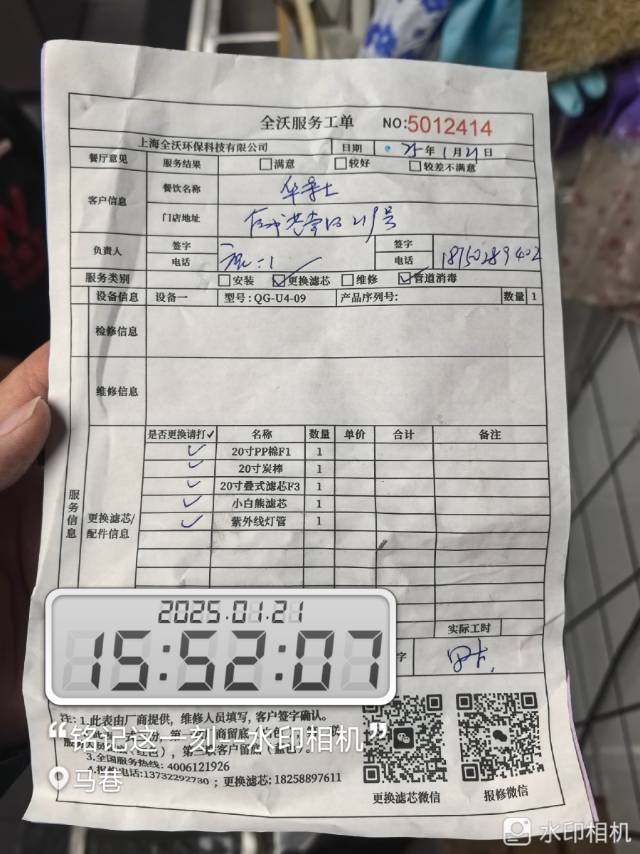 全沃服务工单 NO:5012414
上海全沃环保科技有限公司 日期 25年1月21日
餐厅意见 服务结果 □满意 □较好 □较差不满意
客户信息 餐饮名称 华莱士
门店地址 19号
负责人 签字 电话 签字 电话 18750289402
服务类别 □安装 ☑更换滤芯 □维修 ☑管道消毒
设备信息 设备一 型号:QG-U4-09 产品序列号: 数量 1
检修信息
维修信息
服务信息
更换滤芯/配件信息
是否更换请打✓ 名称 数量 单价 合计 备注
✓ 20寸PP棉F1 1
✓ 20寸炭棒 1
✓ 20寸叠式滤芯F3 1
✓ 小白熊滤芯 1
✓ 紫外线灯管 1
实际工时
字
2025.01.21
15:52:07
注:1.此表由厂商提供,维修人员填写,客户签字确认。
“铭记这一刻 - 水印相机”
3.全国服务热线:4006121926
4.报修电话:13732292730;更换滤芯:18258897611
马巷
更换滤芯微信 报修微信
水印相机